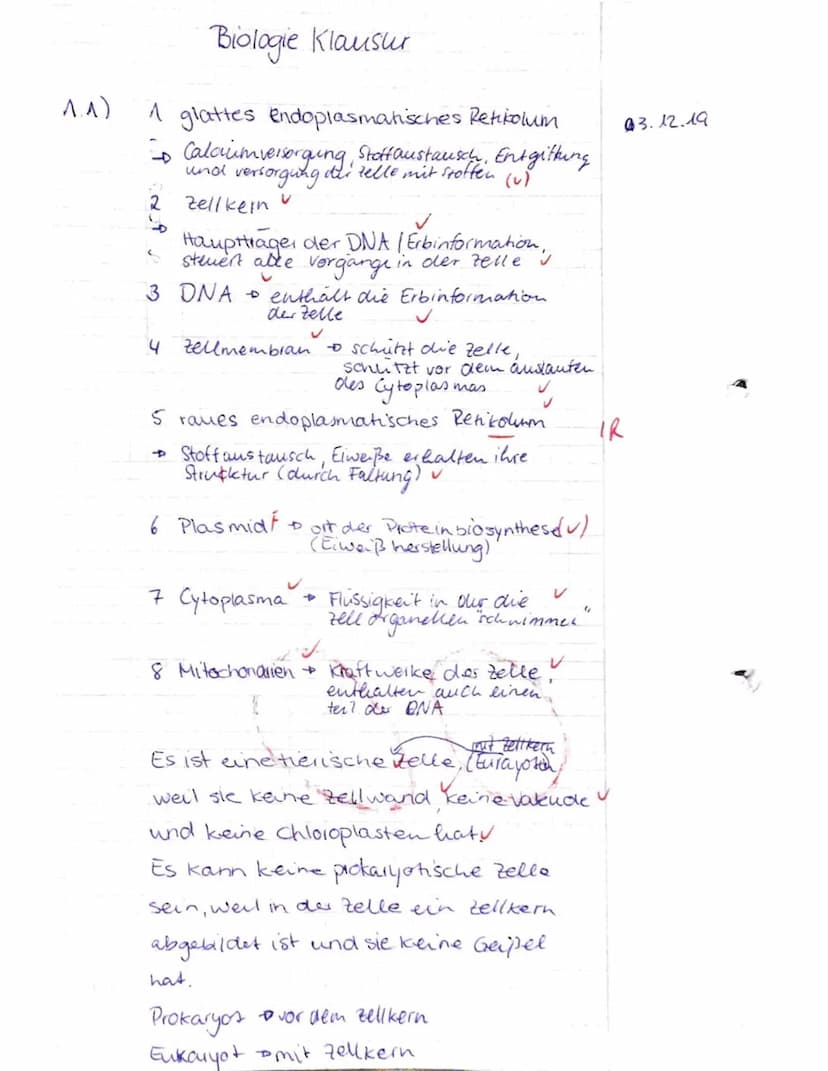 Biologie Klausur
03.12.19
1.1) 1 glattes Endoplasmatisches Retikolum
→ Calciumversorgung, Stoffaustausch, Entgiftung
und versorgung der Zelle mit Stoffen (√)
2 Zellkern √
→ Hauptträger der DNA / Erbinformation, √
steuert alle Vorgänge in der Zelle √
3 DNA √ → enthält die Erbinformation
der Zelle √
4 Zellmembran √ → schützt die Zelle,
schützt vor dem auslaufen
des Cytoplasmas √
5 raues endoplasmatisches Retikolum √ R
→ Stoffaustausch, Eiweiße erhalten ihre
Struktur (durch Faltung) √
6 Plasmid F → ort der Proteinbiosynthese (√)
(Eiweiß herstellung)
7 Cytoplasma √ → Flüssigkeit in der die √
Zellorganellen "schwimmen"
8 Mitochondrien √ → Kraftwerke der Zelle, √
enthalten auch einen
teil der DNA
mit Zellkern
Es ist eine tierische Zelle, (Eukayotin)
weil sie keine Zellwand, √ keine vakuole √
und keine Chloroplasten hat. √
Es kann keine prokaryotische Zelle
sein, weil in der Zelle ein Zellkern
abgebildet ist und sie keine Geißel
hat.
Prokaryot → vor dem Zellkern
Eukaryot → mit Zellkern